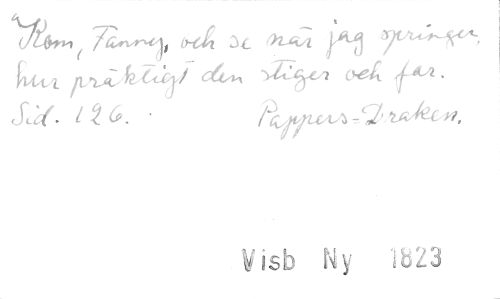 a Kom, Fanny, och se når jag springer,
hur pråktigt den stiger och far.
Sid. 126.
Pappers=Draken.
Visb Ny 1823